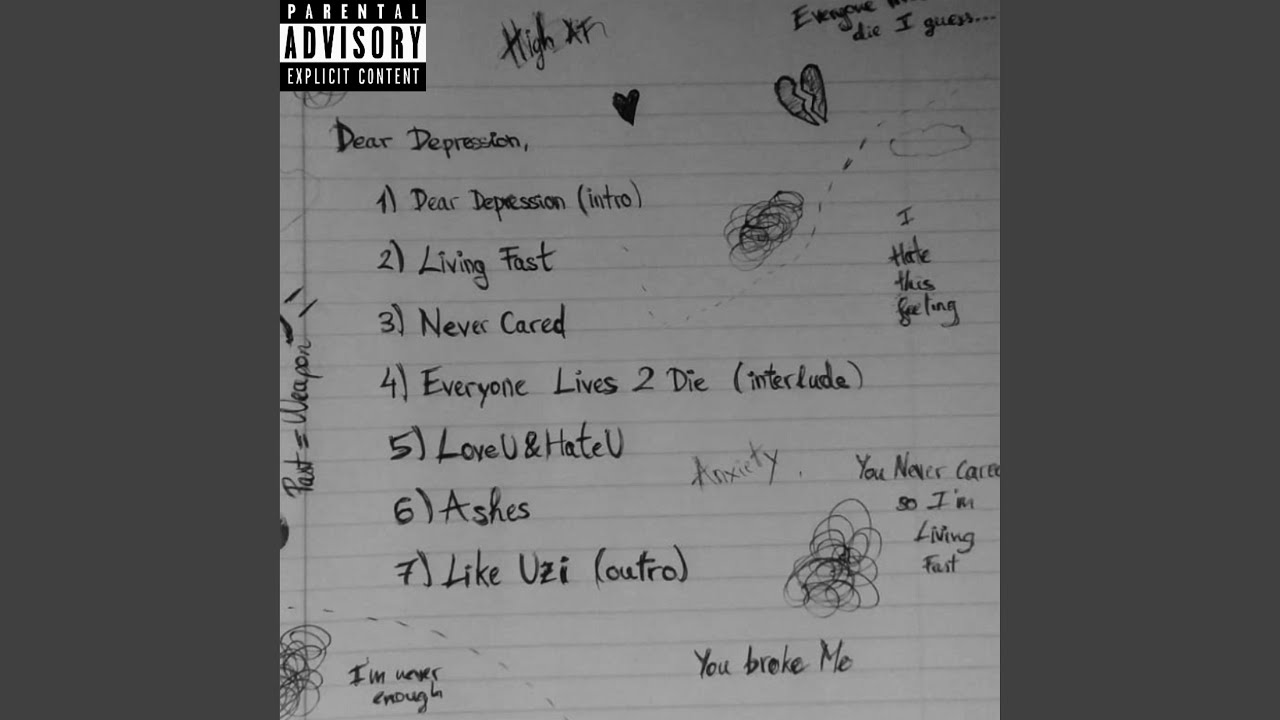 PARENTAL
ADVISORY
EXPLICIT CONTENT
High AF
Everyone
die I guess...
Dear Depression,
1) Dear Depression (intro)
2) Living Fast
3) Never Cared
4) Everyone Lives 2 Die (interlude)
5) LoveU&HateU
6) Ashes
7) Like Uzi (outro)
I
Hate
this
feeling
Past = Weapon
Anxiety
You Never Cared
so I'm
Living
Fast
I'm never
enough
You broke Me